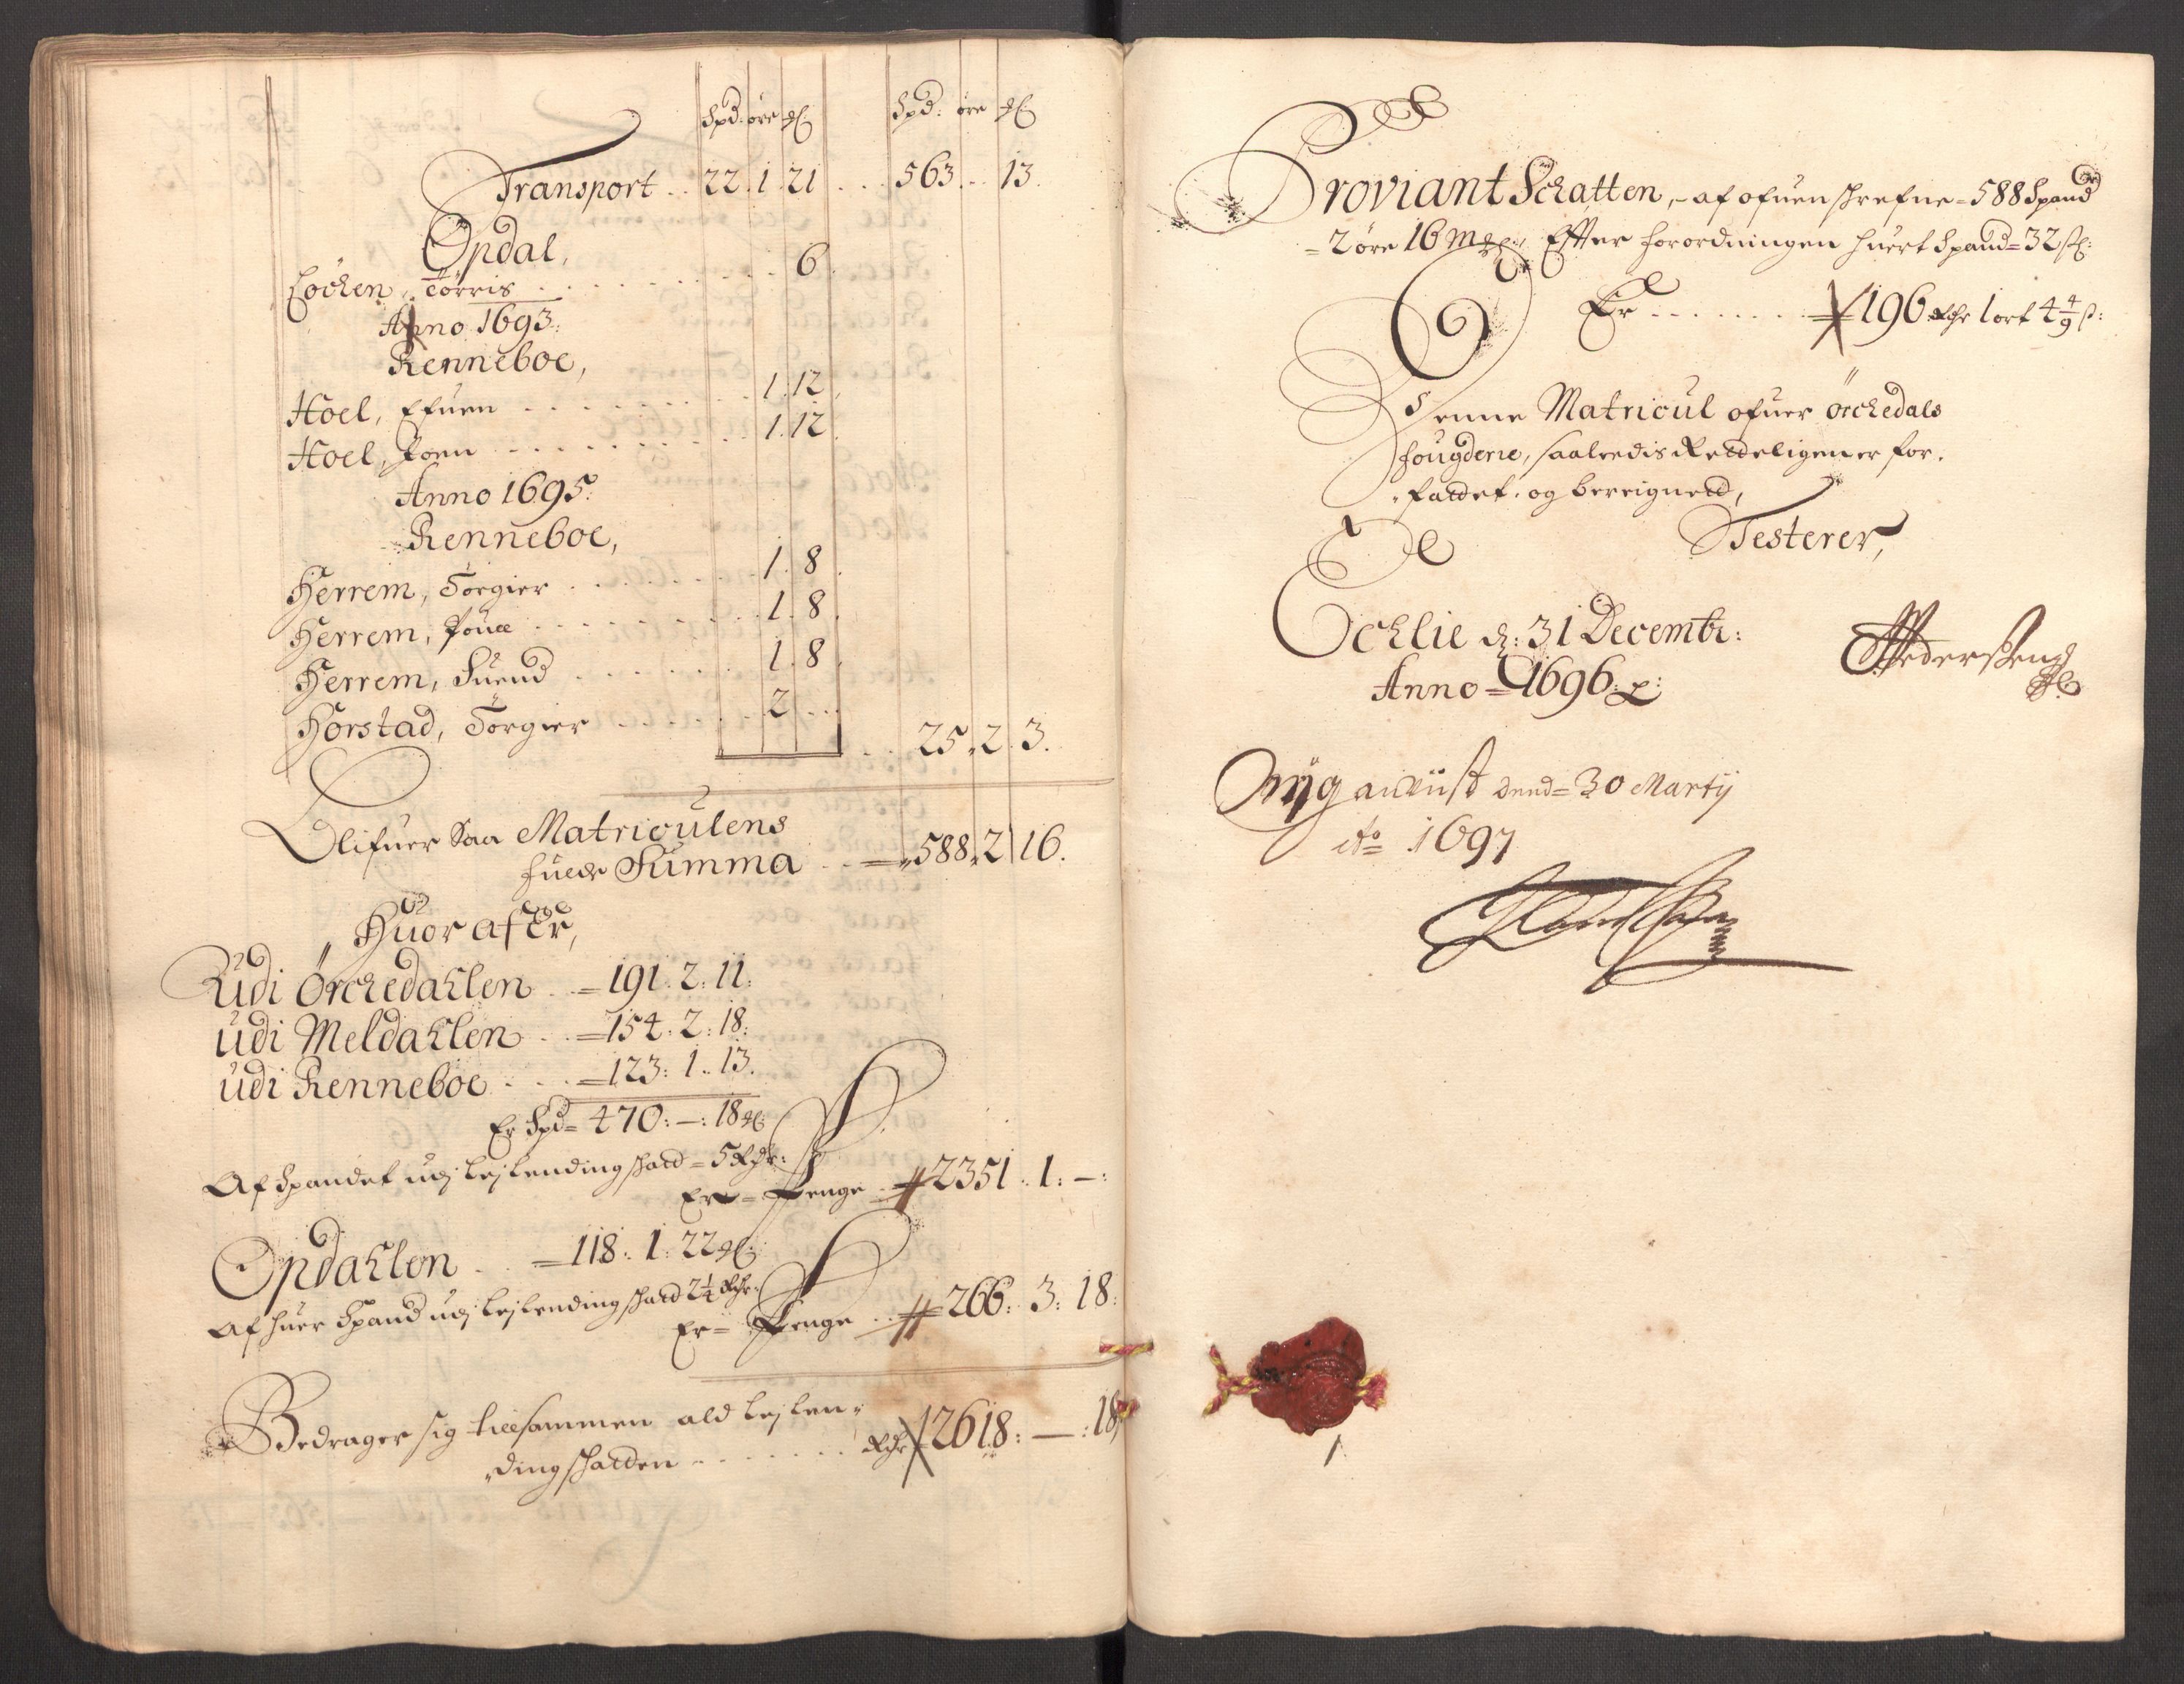 Spd: öre mL: Spd: öre mL
Transport .. 22. 1. 21 ... 563. .. 13.
Opdal,
Löchen, Törris . . . . . . . . 6.
Anno 1693:
Renneboe,
Hoel, Efuen . . . . . . . 1. 12.
Hoel, Joen . . . . . . . 1. 12.
Anno 1695.
Renneboe,
Herrem, Törgier . . . . . . . 1. 8.
Herrem, Pouel . . . . . . . 1. 8.
Herrem, Suend . . . . . . . 1. 8.
Horstad, Törgier . . . . . . . 2. ...
. . 25. 2. 3.
Blifuer saa Matriculens
fulde Summa . . = 588. 2. 16.
Huor af Er,
Udi Örchedahlen . . = 191. 2: 11:
Udi Meldahlen . . = 154: 2: 18:
Udi Renneboe . . . = 123: 1: 13.
Er Spd = 470: —: 18 mL:
Af Spandet udj Lejlending schatt = 5 Rdr:
Er = Penge . 2351 . 1: —:
Opdahlen . . = 118: 1: 22 mL:
Af huer Spand udj Lejlending schatt 2 1/4 Rdr:
Er = Penge . . 266: 3: 18:
Bedrager sig tilsammen ald Lejlen-
dingschatten . . . . . . . Rdr 2618: — : 18
Proviant Schatten, - af ofuenschrefne = 588 Spand
= 2 öre 16 mL: Efter forordningen huert Spand = 32 s:
Er . . . . . . . 196 Rdr 1 ort 4 4/9 s:
Denne Matricul ofuer Örchedals
fougderie, saaledis Retteligen er for-
fattet og bereignett,
Testerer,
Ochlie d: 31 Decembr:
Anno = 1696:
PederSen
30 Martij
Ao 1697